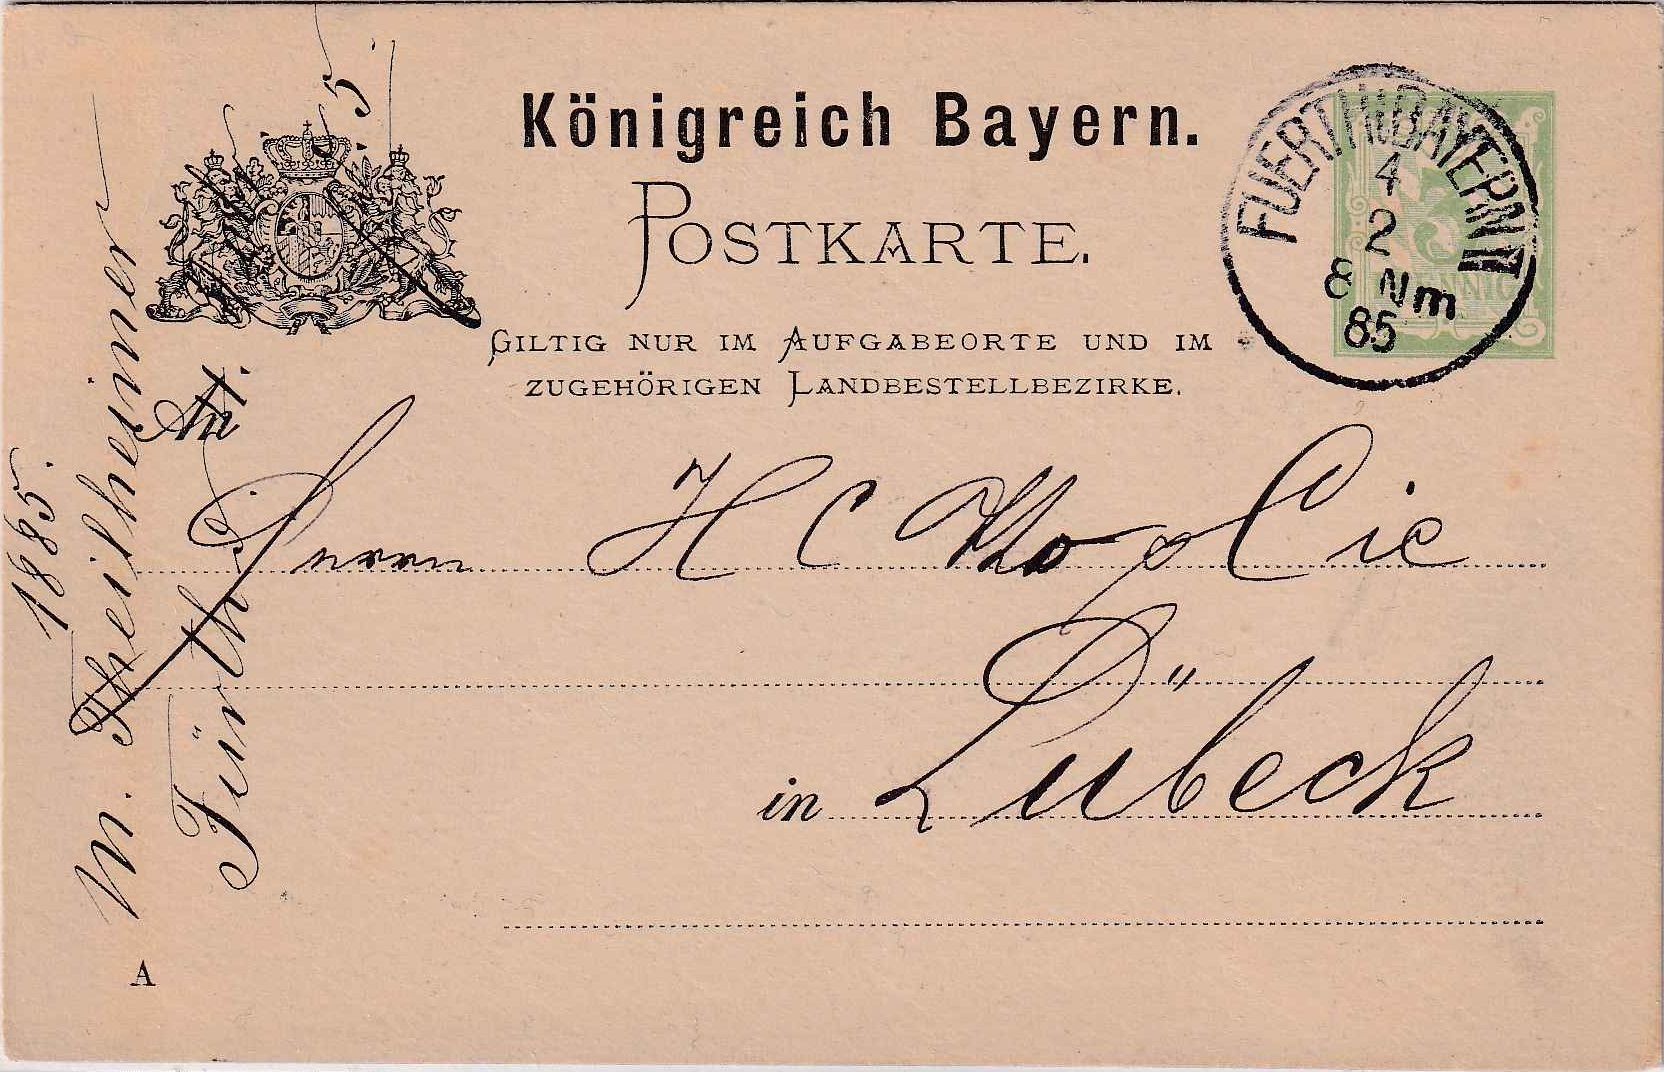 Königreich Bayern.
POSTKARTE.
GILTIG NUR IM AUFGABEORTE UND IM
ZUGEHÖRIGEN LANDBESTELLBEZIRKE.
FUERTH BAYERN II
4
2
8 Nm
85
An
Herrn H C Otto & Cie
in Lübeck
A
1885.
M. Theilheimer
Fürth